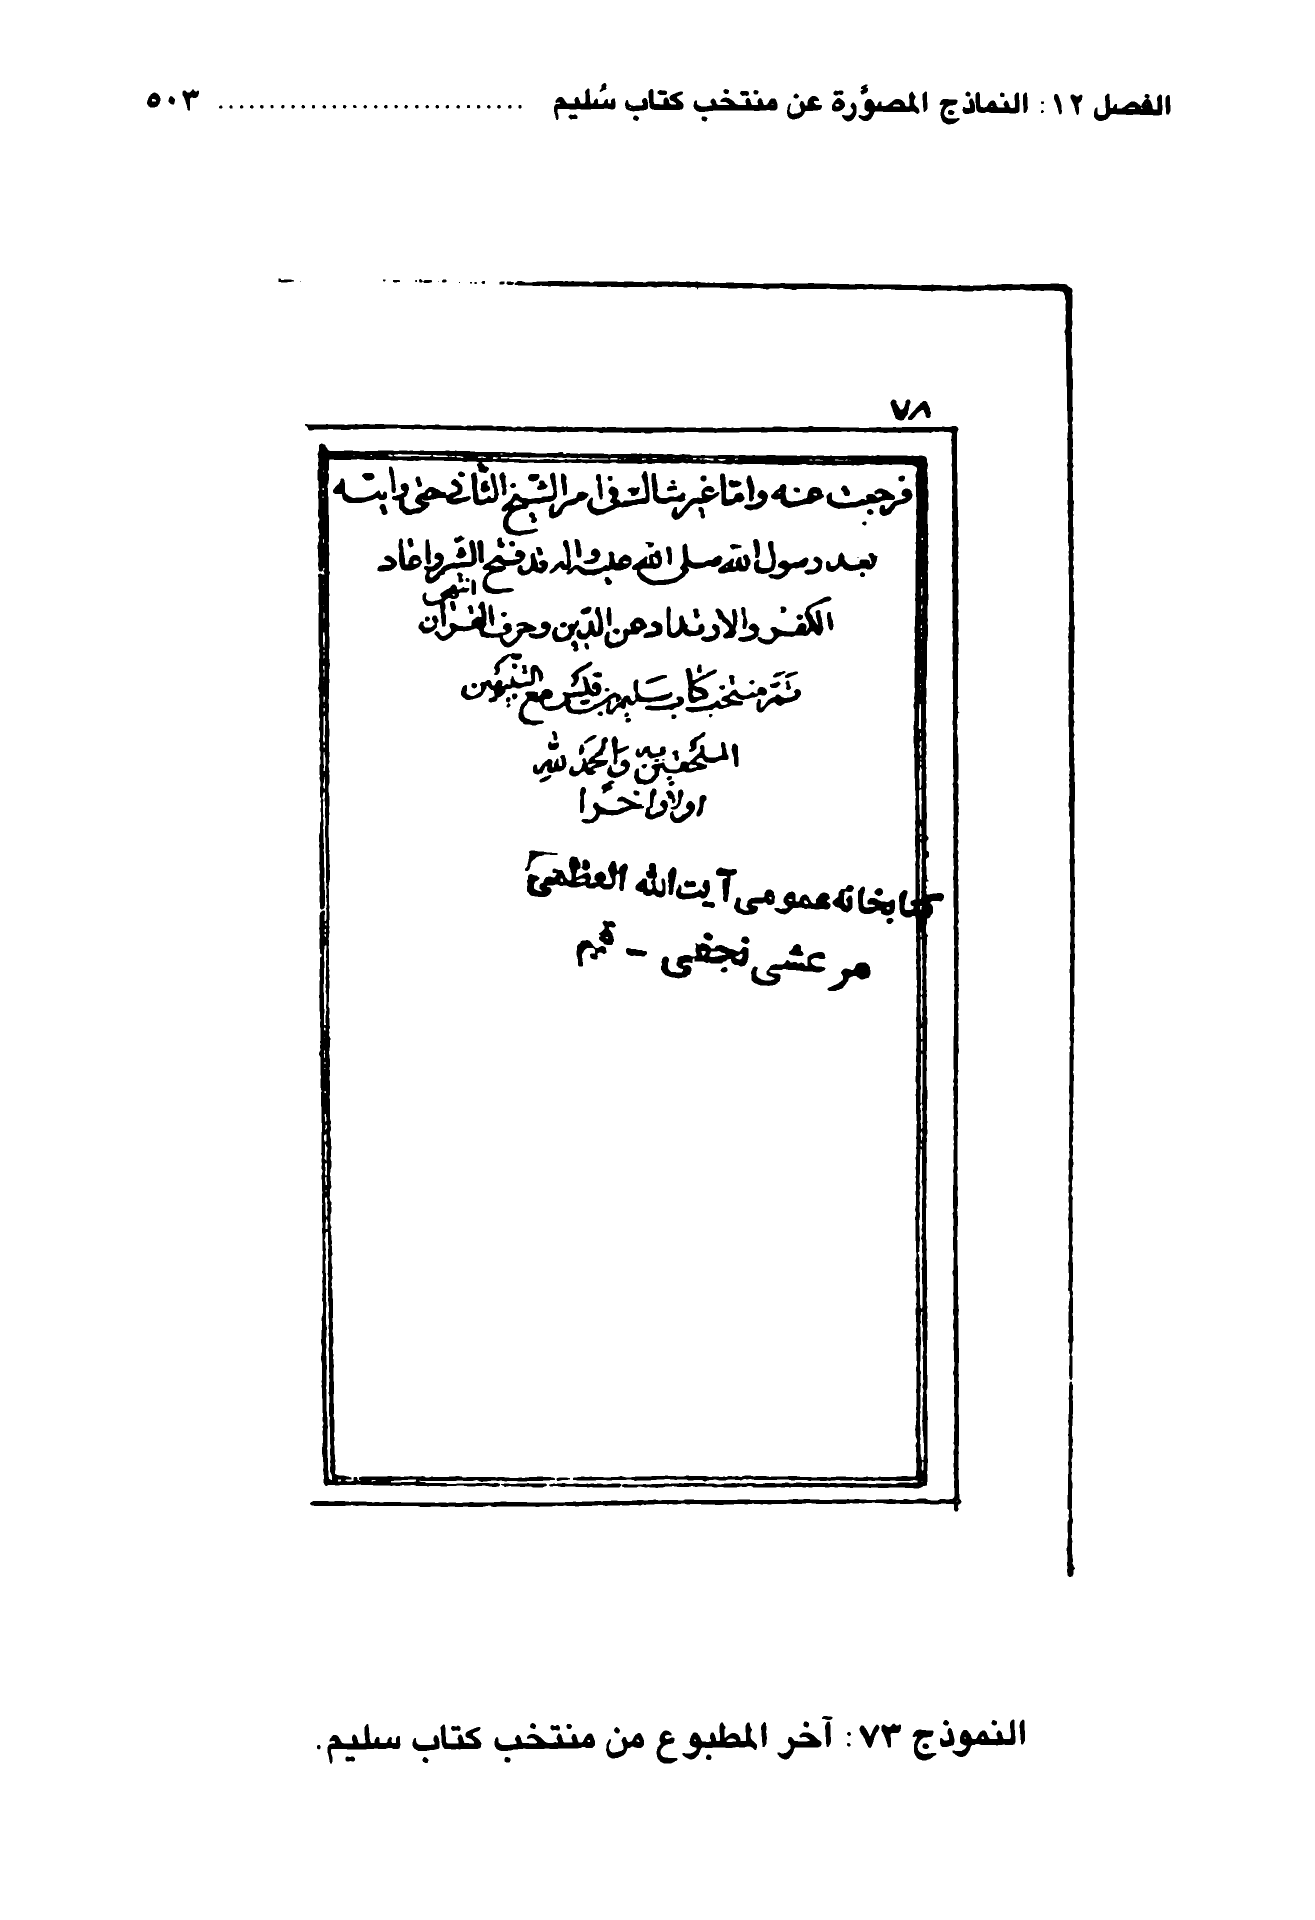 الفصل ١٢: النماذج المصوَّرة عن منتخب كتاب سُليم ............................. ٥٠٣
٧٨
فرجعت عنه واما غير شاك فى امر الشيخ الثانى حتى رايته
بعد رسول الله صلى الله عليه واله قد فتح الشر واعاد
الكفر والارتداد عن الدين وحرف القرآن انتهى
تمَّ منتخب كتاب سليم بن قيس مع التنبيهين
الملحقين به والحمد لله
اولا واخرا
كتابخانه عمومى آيت الله العظمى
مرعشى نجفى - قم
النموذج ٧٣: آخر المطبوع من منتخب كتاب سليم.